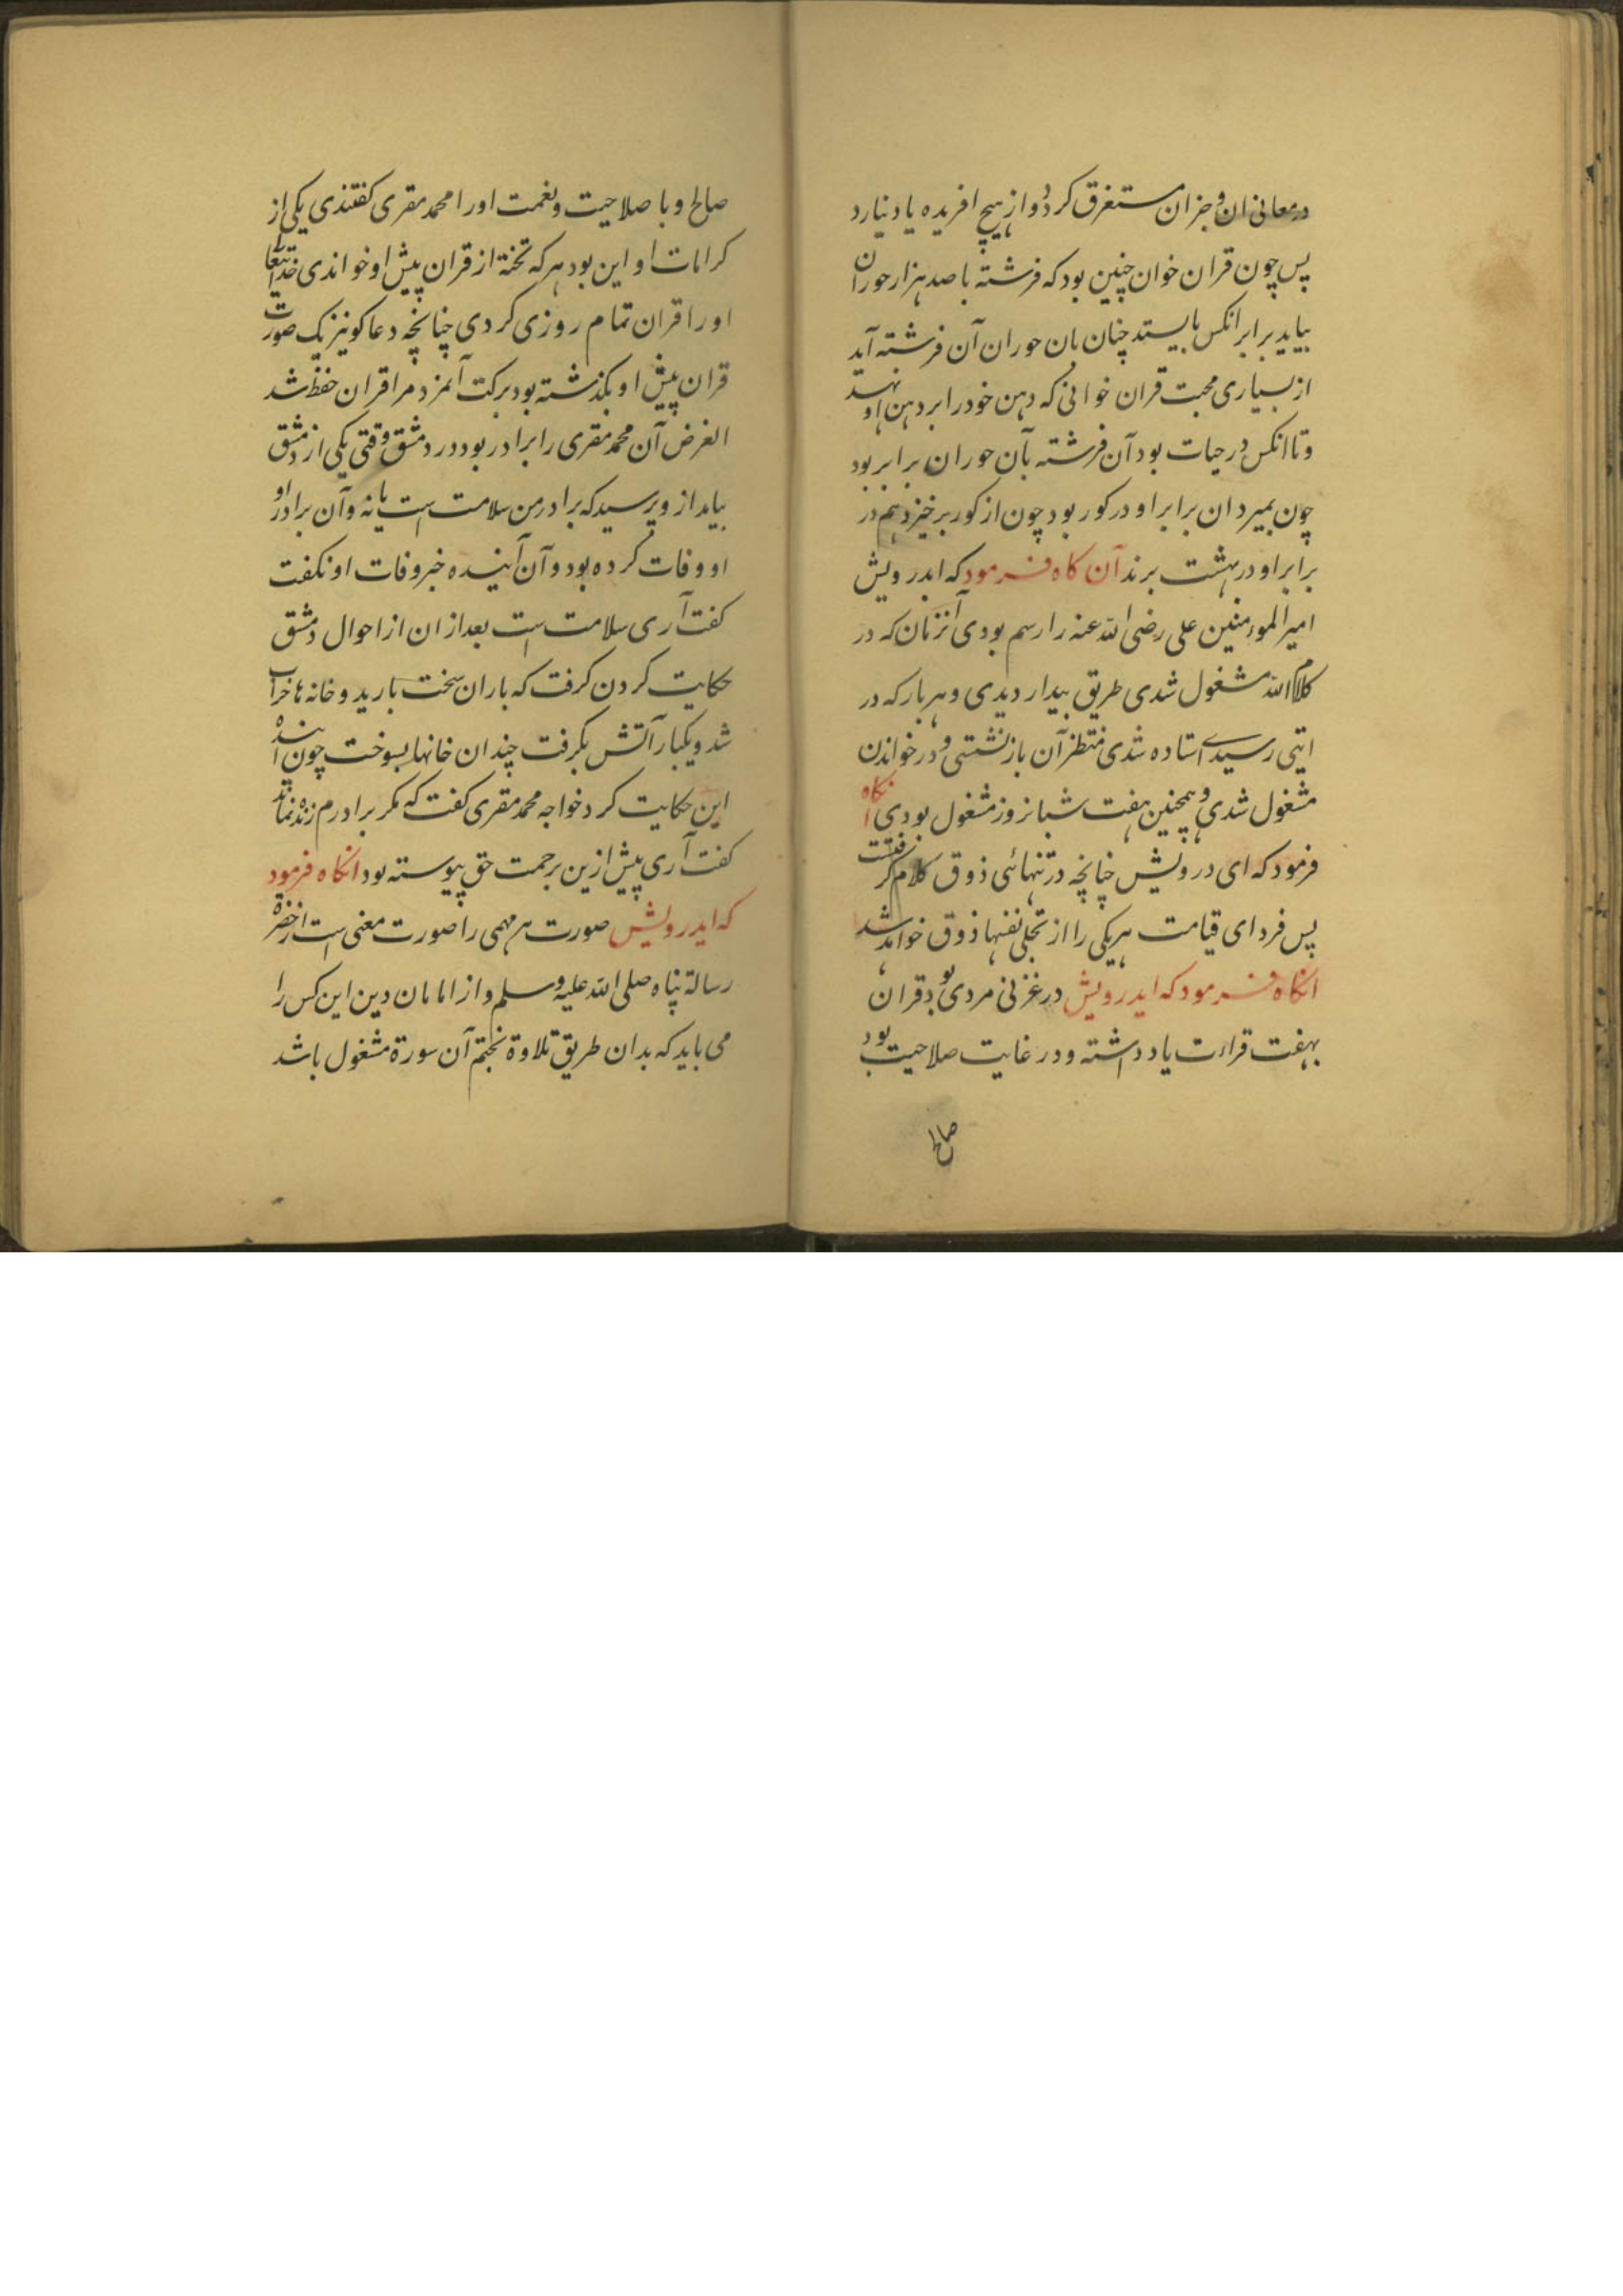 در معانی ان و جز ان مستغرق کردد و از هیچ افریده یاد نیارد
پس چون قران خوان چنین بود که فرشته با صد هزار حوران
بیاید برابر انکس بایستد چنان بان حوران آن فرشته آید
از بسیاری محبت قران خوانی که دهن خود را بر دهن او نهند
و تا انکس در حیات بود آن فرشته بآن حوران برابر بود
چون بمیرد ان برابر او در کور بود چون از کور برخیزد هم در
برابر او در بهشت برند آن کاه فرمود که ایدرویش
امیر الموءمنین علی رضی الله عنه را رسم بودی آنزمان که در
کلام الله مشغول شدی طریق بیدار دیدی و هر بار که در
ایتی رسیدی استاده شدی منتظر آن باز نشستی و در خواندن
مشغول شدی و همچنین هفت شبانروز مشغول بودی انکاه
فرمود که ای درویش چنانچه در تنهائی ذوق کلام کرفتست
پس فردای قیامت هر یکی را از تجلی نفسها ذوق خواهد شد
انکاه فرمود که ایدرویش در غزنی مردی بود قران
بهفت قراءت یاد داشته و در غایت صلاحیت بود
صالح
صالح و با صلاحیت و نغمت اورا محمد مقری کفتندی یکی از
کرامات او این بود هر که تخته از قران پیش او خواندی خدایتعا
اورا قران تمام روزی کردی چنانچه دعاکو نیز یک صورت
قران پیش او بکذشته بود برکت آنمزد مرا قران حفظ شد
الغرض آن محمد مقری را برادر بود در دمشق وقتی یکی از دمشق
بیاید از و پرسید که برادر من سلامت است یا نه و آن برادر او
او وفات کرده بود و آن آینده خبر وفات او نکفت
کفت آری سلامت است بعد از ان از احوال دمشق
حکایت کردن کرفت که باران سخت بارید و خانه ها خراب
شد و یکبار آتش بکرفت چندان خانها بسوخت چون اینده
این حکایت کرد خواجه محمد مقری کفت که مکر برادرم زنده نماند
کفت آری پیش ازین برحمت حق پیوسته بود انکاه فرمود
که ایدرویش صورت هر مهمی را صورت معنی است از حضرة
رسالة پناه صلی الله علیه وسلم و از امامان دین این کس را
می باید که بدان طریق تلاوة بختم آن سورة مشغول باشد